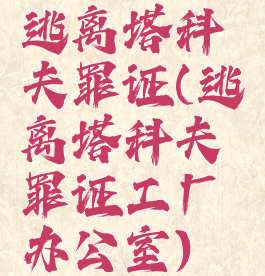 逃离塔科
夫罪证(逃
离塔科夫
罪证工厂
办公室)